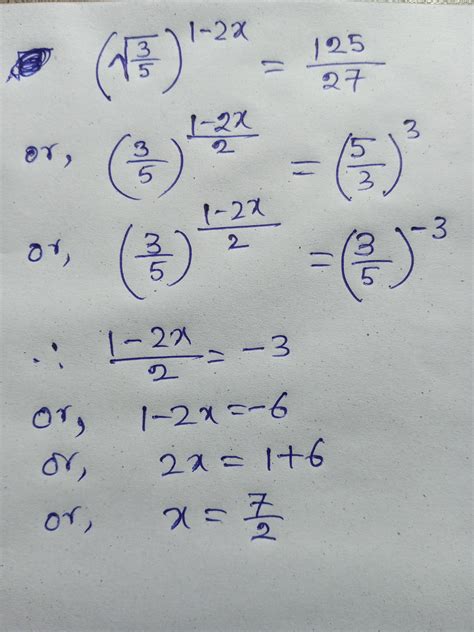 (√3/5)^1-2x = 125/27
or, (3/5)^1-2x/2 = (5/3)^3
or, (3/5)^1-2x/2 = (3/5)^-3
∴ 1-2x/2 = -3
or, 1-2x = -6
or, 2x = 1+6
or, x = 7/2